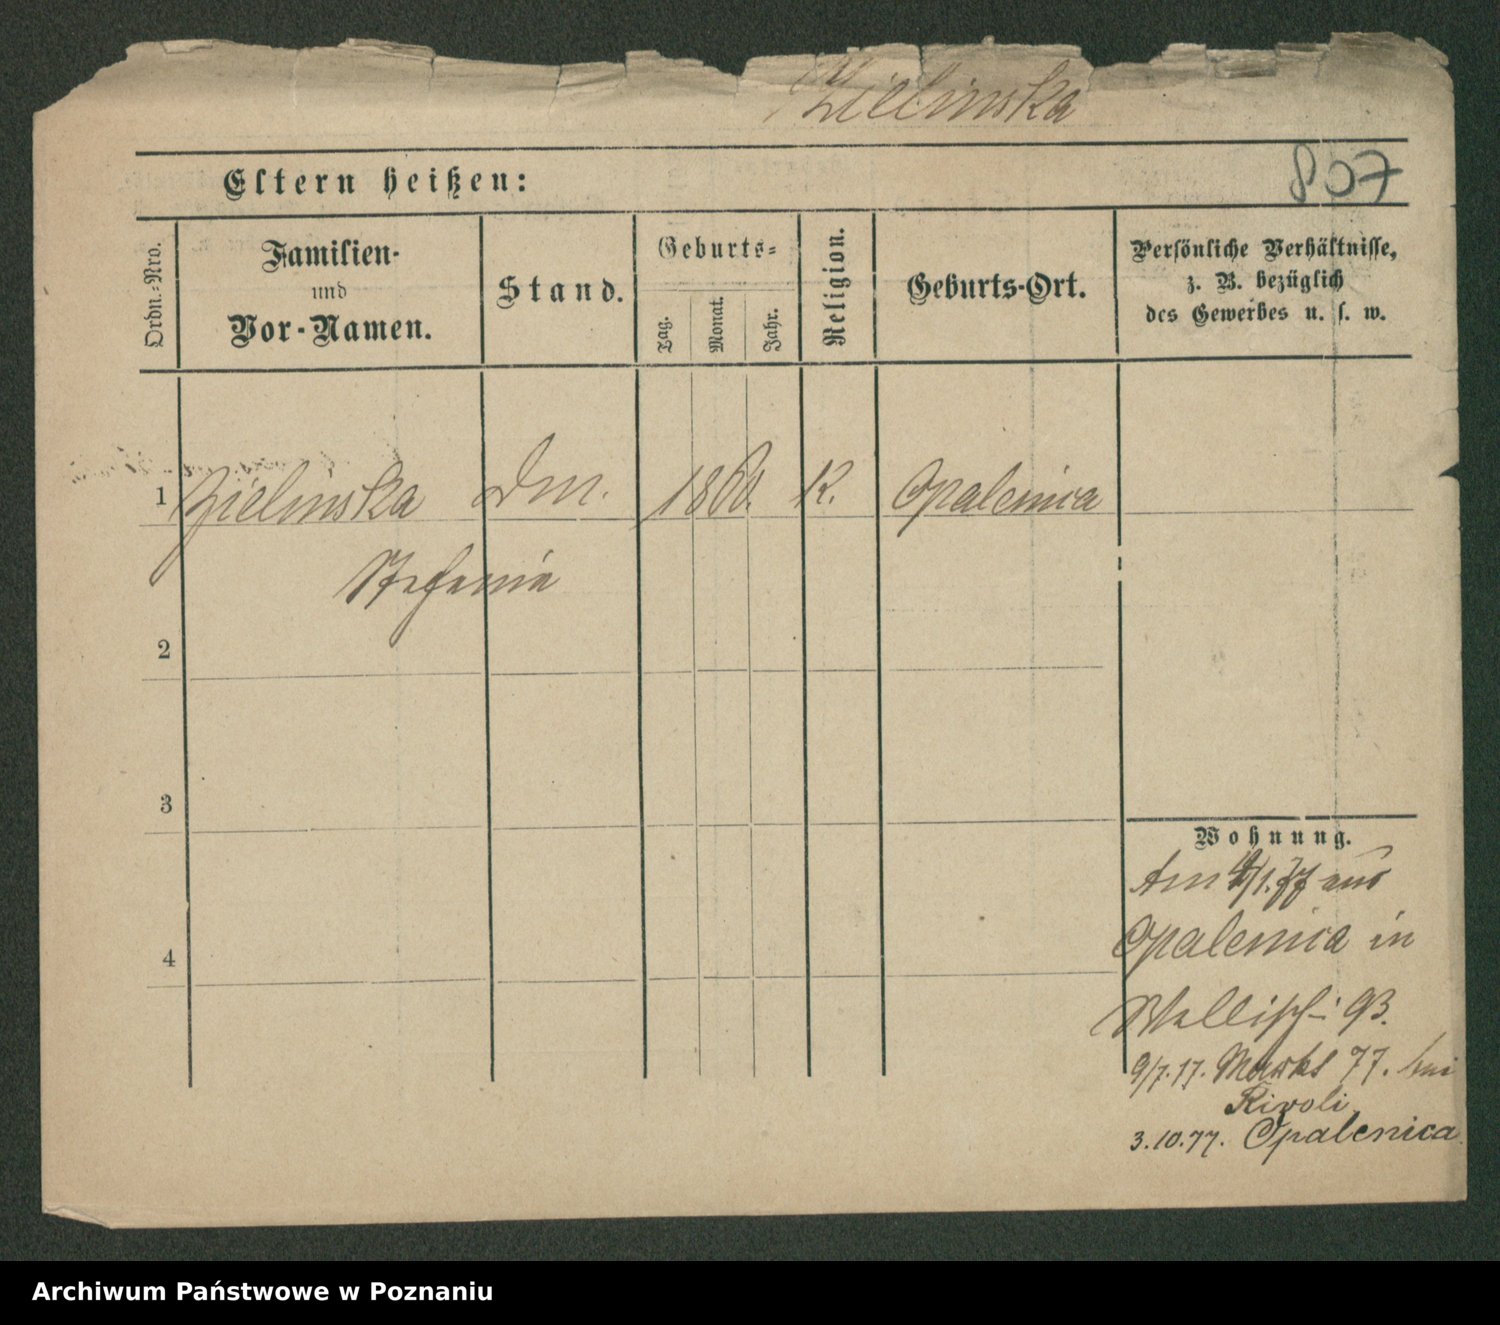 Zielinska
807
Eltern heißen:
Ordn.-Nro.
Familien-
und
Vor-Namen.
Stand.
Geburts-
Tag.
Monat.
Jahr.
Religion.
Geburts-Ort.
Persönliche Verhältnisse,
z. B. bezüglich
des Gewerbes u. s. w.
1 Zielinska Dm. 1860. K. Opalenica
Stefania
2
3
Wohnung.
Am /1.77 aus
Opalenica in
Wallisch: 93.
9/7.77. Markt 77. bei
Rivoli
3.10.77. Opalenica
4
Archiwum Państwowe w Poznaniu